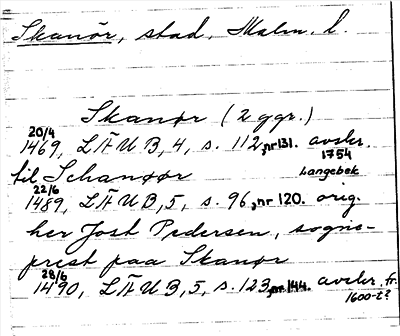 Skanör, stad, Malm. l.
Skanør (2 ggr.)
20/4
1469, LÄUB, 4, s. 112, nr 131. avskr.
1754
til Schanøør Langebek
22/6
1489, LÄUB, 5, s. 96, nr 120. orig.
her Jost Pedersen, sogne-
prest paa Skanør
28/6
1490, LÄUB, 5, s. 123, nr 144. avskr. fr.
1600-t?